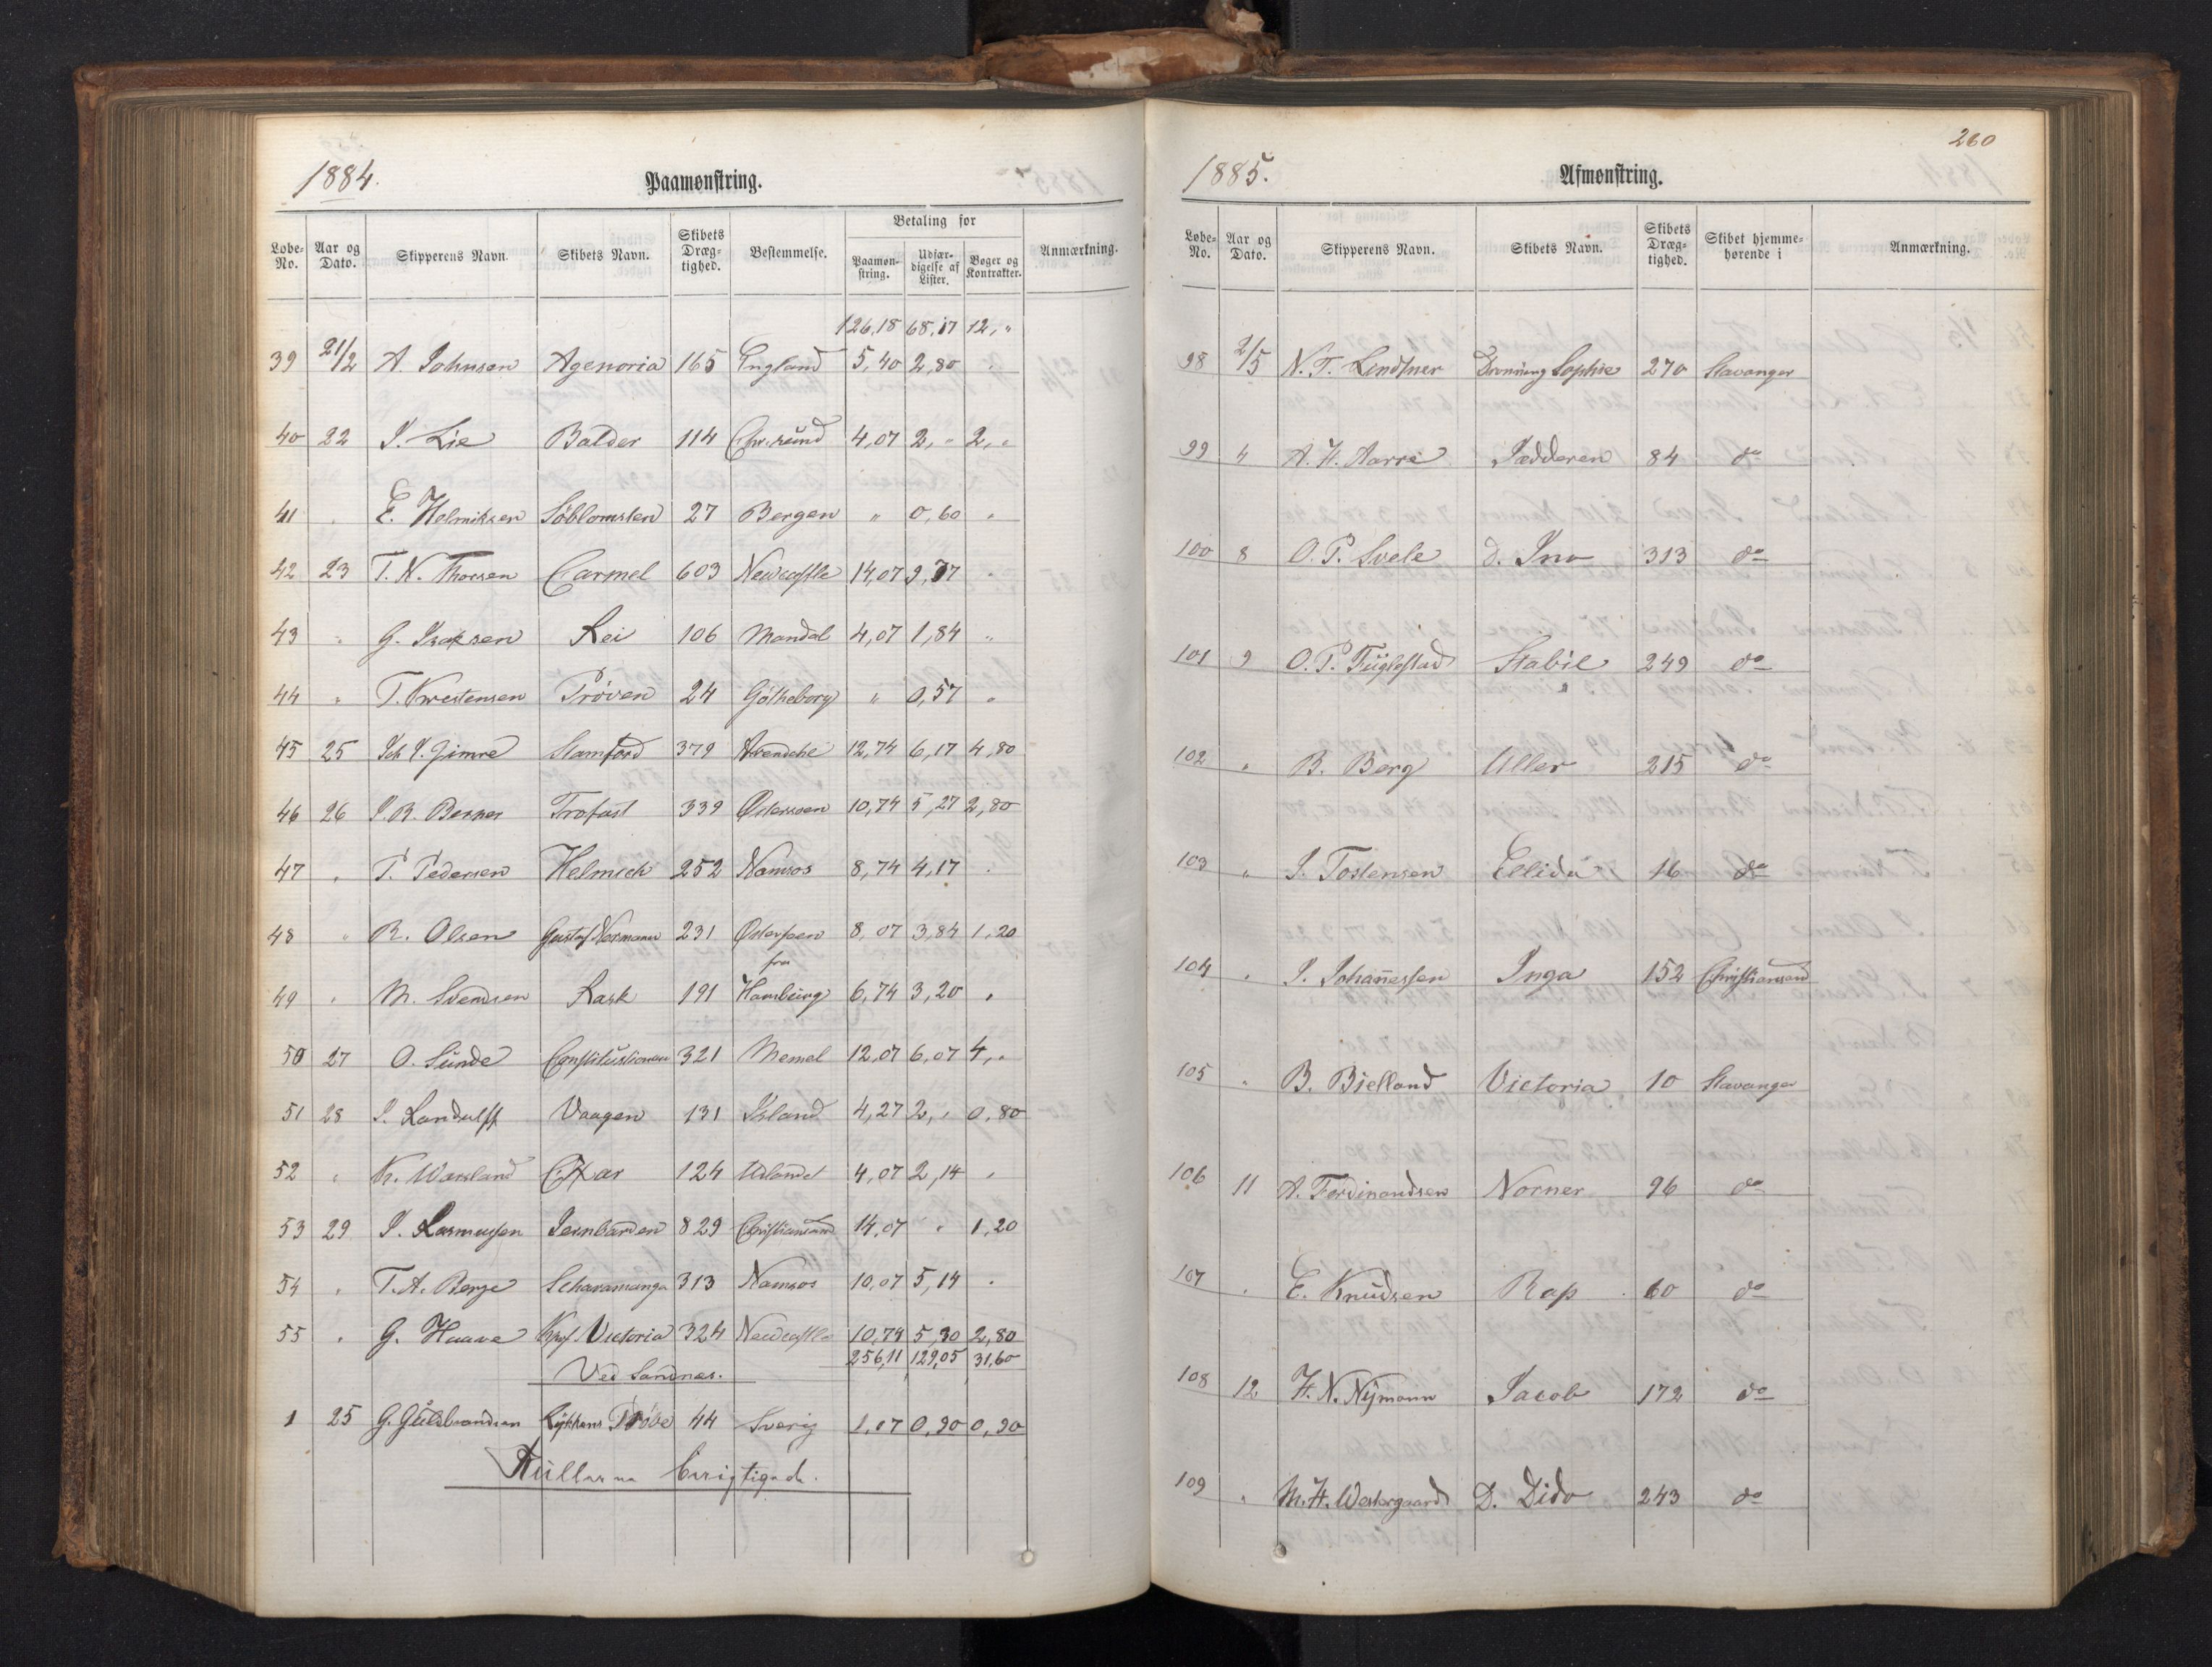 1884.
Paamønstring.
Løbe-No. Aar og Dato. Skipperens Navn. Skibets Navn. Skibets Dræg-tighed. Bestemmelse. Betaling for Paamøn-string. Udfær-digelse af Lister. Bøger og Kontrakter. Anmærkning.
126,18 68,17 12,"
39 21/2 A. Johnsen Agenoria 165 England 5,40 2,80 "
40 22 J. Lie Balder 114 Chr.sund 4,07 2," 2,"
41 " E. Helmiksen Søblomsten 27 Bergen " 0,60 "
42 23 T. N. Thorsen Carmel 603 Newcastle 14,07 9,77 "
43 " G. Isaksen Rei 106 Mandal 4,07 1,84 "
44 " T. Krestensen Prøven 24 Götheborg " 0,57 "
45 25 Joh. J. Gimre Stamford 379 12,74 6,17 4,80
46 26 J. R. Berner Trofast 339 Østersøen 10,74 5,27 2,80
47 " P. Pedersen Helmich 252 Namsos 8,74 4,17 "
48 " R. Olsen Gustaf Normann 231 Østersøen 8,07 3,84 1,20
49 " M. Svendsen Rask 191 fra Hamburg 6,74 3,20 "
50 27 O. Sunde Constitustionen 321 Memel 12,07 6,07 4,"
51 28 J. Randulff Vaagen 131 Island 4,27 2," 0,80
52 " K. Warsland 124 Udlandet 4,07 2,14 "
53 29 J. Rasmussen Jernbarden 829 Christiansand 14,07 " 1,20
54 " T. A. Berge Scharamanga 313 Namsos 10,07 5,14 "
55 " G. Haave Victoria 324 Newcastle 10,74 5,30 2,80
256,11 129,05 31,60
Ved Sandnæs.
1 25 G. Guldbrandsen Lykkens Prøve 44 Sverig 1,07 0,90 0,90
Rullerne berigtigede.
260
1885.
Afmønstring.
Løbe-No. Aar og Dato. Skipperens Navn. Skibets Navn. Skibets Dræg-tighed. Skibet hjemme-hørende i Anmærkning.
98 2/5 N. T. Lindtner Dronning Sophie 270 Stavanger
99 4 A. H. Aarre Jædderen 84 do
100 8 O. P. Svele D. Ino 313 do
101 9 O. P. Fuglestad Stabil 249 do
102 " B. Berg Uller 215 do
103 " J. Tostensen Ellida 16 do
104 " J. Johannessen Inga 152 Christiansand
105 " B. Bielland Victoria 10 Stavanger
106 11 A. Ferdinandsen Norner 96 do
107 " E. Knudsen Rap 60 do
108 12 H. N. Nymann Jacob 172 do
109 " M. H. Westergaard D. Dido 243 do